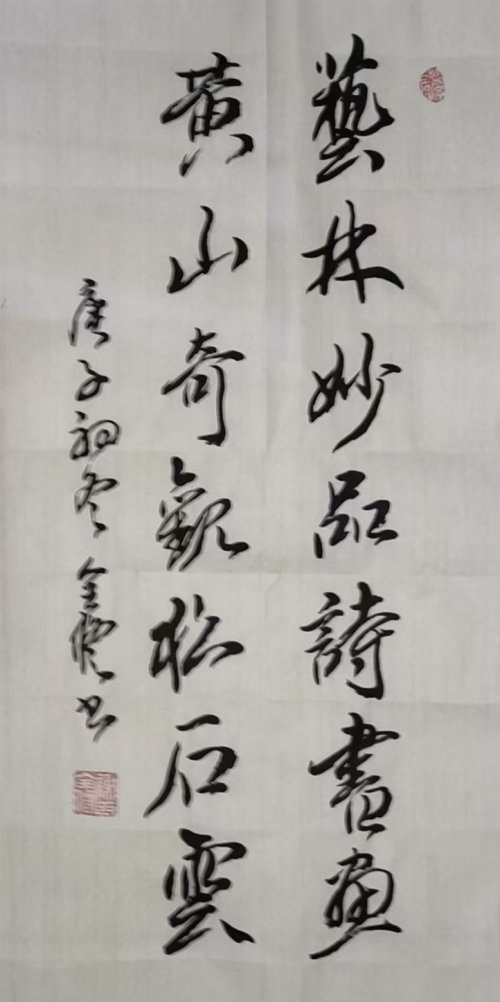 藝林妙品詩書畫
黃山奇觀松石雲
庚子初冬金書